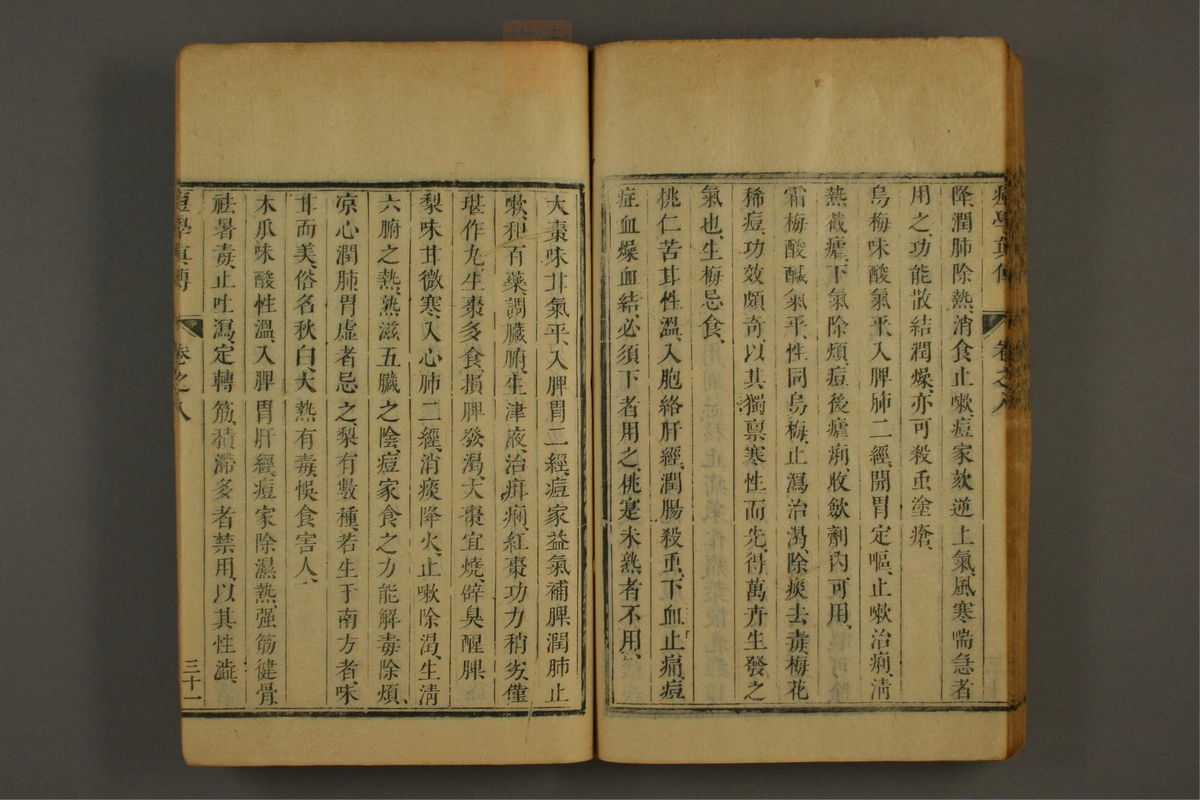 痘學眞傳 卷之八
降、潤肺除熱、消食止嗽、痘家欬逆上氣、風寒喘急者
用之、功能散結潤燥、亦可殺虫塗瘡、
烏梅味酸氣平、入脾肺二經、開胃定嘔、止嗽治痢、淸
熱截瘧、下氣除煩、痘後瘧痢、收斂劑內可用、
霜梅酸鹹氣平、性同烏梅、止瀉治渴、除痰去毒、梅花
稀痘、功效頗奇、以其獨禀寒性而先、得萬卉生發之
氣也、生梅忌食、
桃仁苦甘性溫、入胞絡肝經、潤腸殺虫、下血止痛、痘
症血燥血結、必須下者用之、桃寔未熟者不用、
大棗味甘氣平、入脾胃二經、痘家益氣補脾潤肺止
嗽、和百藥、調臟腑、生津液、治痢、紅棗功力稍劣、僅
堪作丸、生棗多食、損脾發渴、大棗宜燒、辟臭醒脾
梨味甘微寒、入心肺二經、消痰降火、止嗽除渴、生淸
六腑之熱、熟滋五臟之陰、痘家食之力能解毒除煩、
凉心潤肺、胃虛者忌之、梨有數種、若生于南方者、味
甘而美、俗名秋白、大熱有毒、悞食害人、
木瓜味酸性溫、入脾胃肝經、痘家除濕熱、强筋健骨、
祛暑毒、止吐瀉、定轉筋、積滯多者禁用、以其性澁、
痘學眞傳 卷之八 三十一